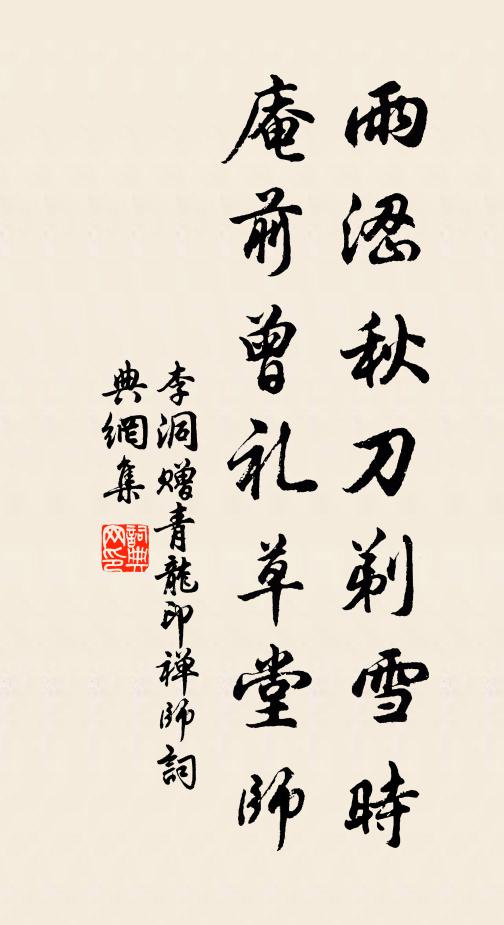 雨涩秋刀剃雪時
庵前曾礼草堂師
李洞赠青龍印禅師詞
典網集
詞典
网印